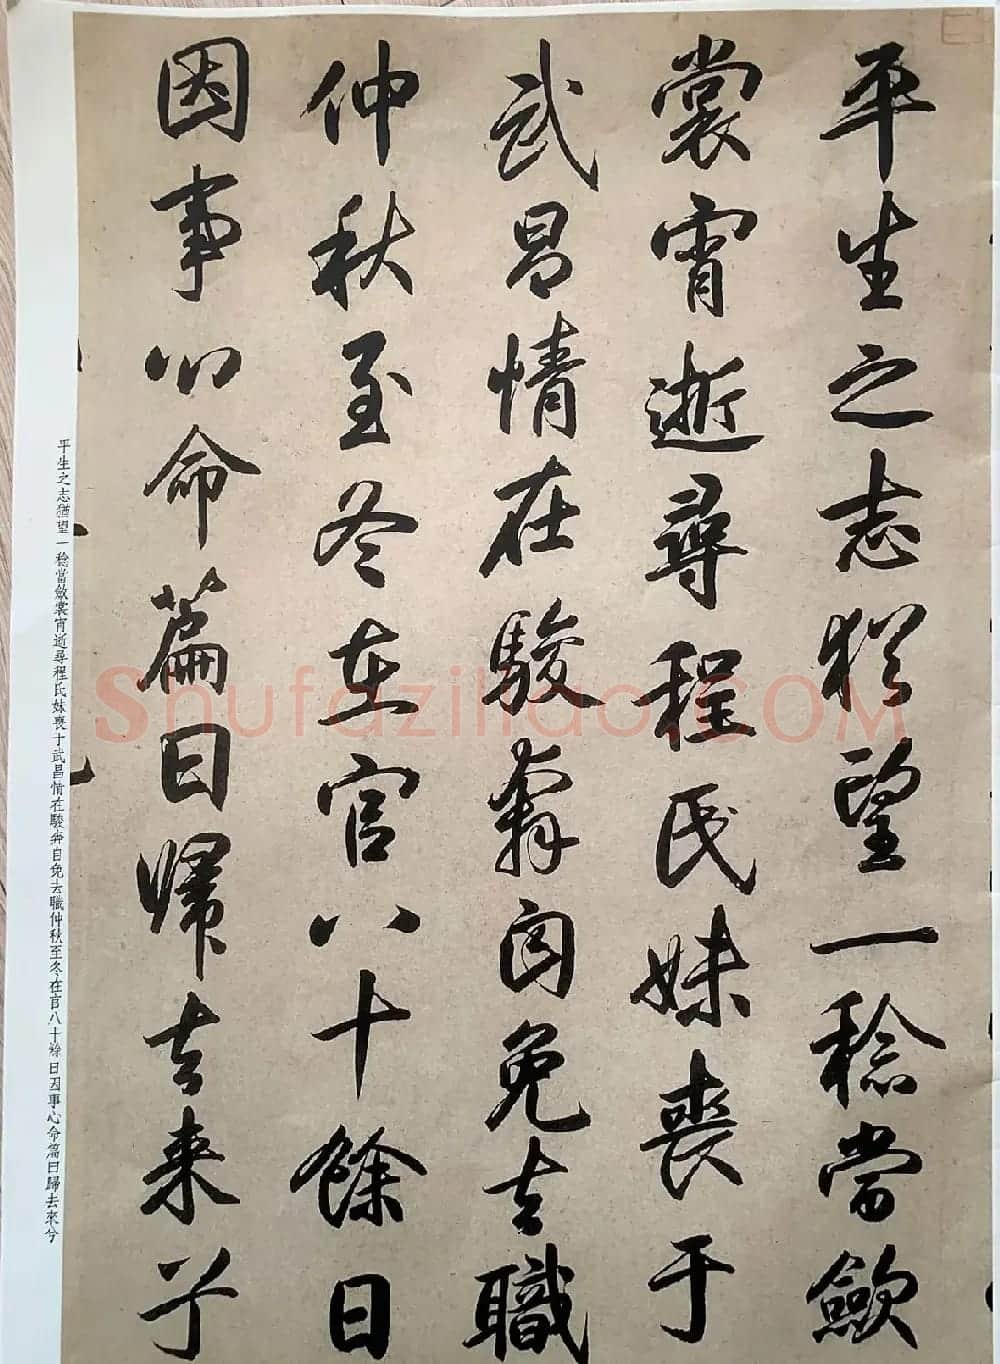 平生之志猶望一稔當歛
裳宵逝尋程氏妹喪于
武昌情在駿奔自免去職
仲秋至冬在官八十餘日
因事心命篇曰歸去来兮
平生之志猶望一稔當斂裳宵逝尋程氏妹喪于武昌情在駿奔自免去職仲秋至冬在官八十餘日因事心命篇曰歸去來兮
Shufaziliao.COM